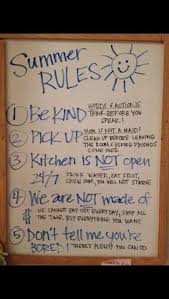 Summer
RULES
1 Be KIND WORDS & ACTIONS
THINK BEFORE YOU
SPEAK!
2 PICK UP MOM IS NOT A MAID!
CLEAN UP BEFORE LEAVING
THE ROOM & BEFORE FRIENDS
COME OVER
3 Kitchen is NOT open
24/7 DRINK WATER, EAT FRUIT,
YOU WILL NOT STARVE
4 We are NOT made of
$ WE CANNOT EAT OUT EVERYDAY, SHOP ALL
THE TIME, BUY EVERYTHING YOU WANT
5 Don't tell me you're
BORED! THERE'S PLENTY YOU CAN DO